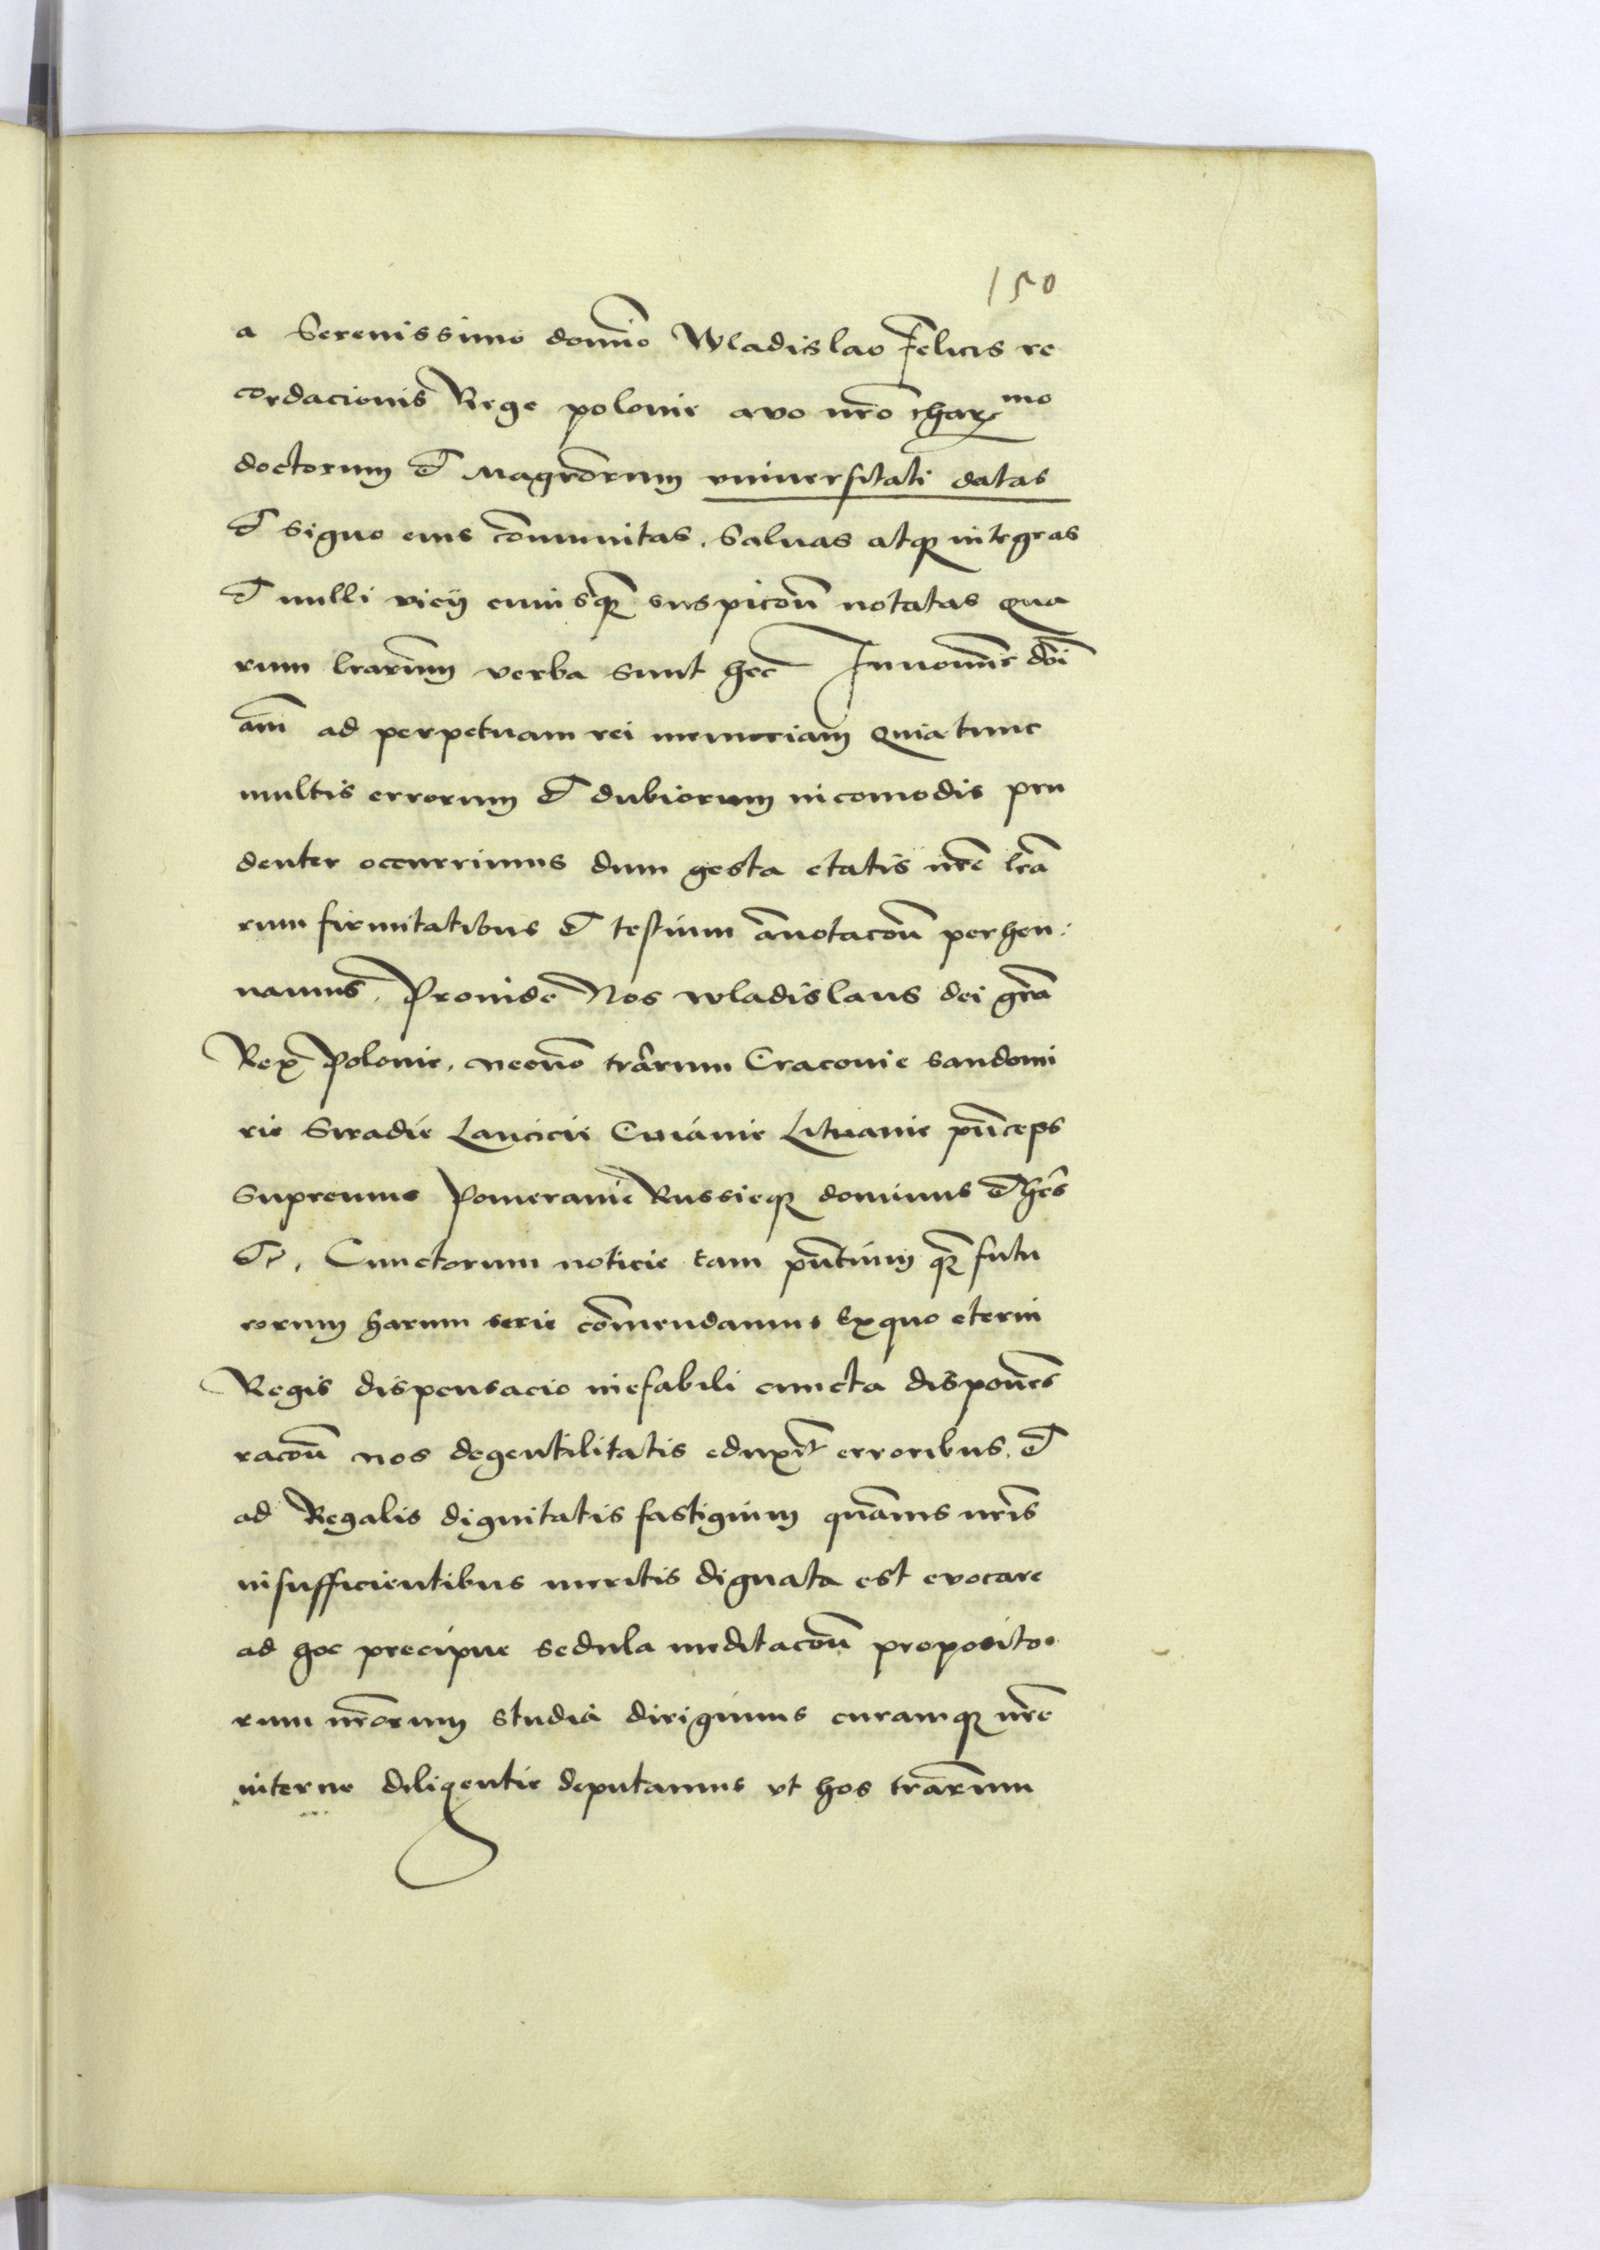 150
a Serenissimo domino Wladislao Felicis re
cordacionis Rege polonie avo nro charmo
doctorum et Magrorum vniuersitati datas
et signo eius communitas . Saluas atque integras
et nulli vicij cuiusque suspiconi notatas Qua
rum lrarum verba sunt hec In nomine dni
am ad perpetuam rei memoriam Quia tunc
multis errorum et dubiorum incomodis pru
denter occurrimus dum gesta etatis nre lra
rum firmitatibus et testium annotaconi perhen
namus . Proinde Nos Wladislaus dei gra
Rex Polonie . necnon trarum Cracouie sandomi
rie Siradie Lancicii Cuiauie Lituanie princeps
Supremus Pomeranie Russieque dominus et heres
etc . Cunctorum noticie tam pntium quam futu
rorum harum serie commendamus Ex quo eterni
Regis dispensacio inefabili cuncta disponens
raconi nos de gentilitatis eduxit erroribus . et
ad Regalis dignitatis fastigium quamuis nris
insufficientibus meritis dignata est evocare
ad hoc precipue sedula meditaconi proposito
rum nrorum studia dirigimus curamque nre
interne diligentie deputamus vt hos trarum